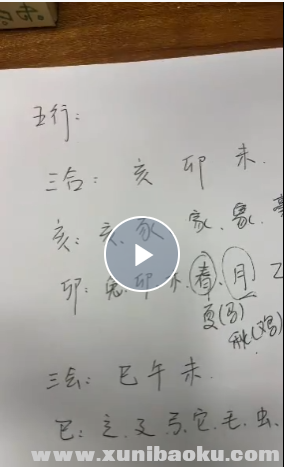 五行:
三合: 亥 卯 未.
亥: 亥、豕 家、象、豪
卯: 兔、卯、木、春、月 乙
夏(马)
秋(鸡)
三会: 巳 午 未.
巳: 辶、廴、弓、它、毛、虫、
www.xunibaoku.com